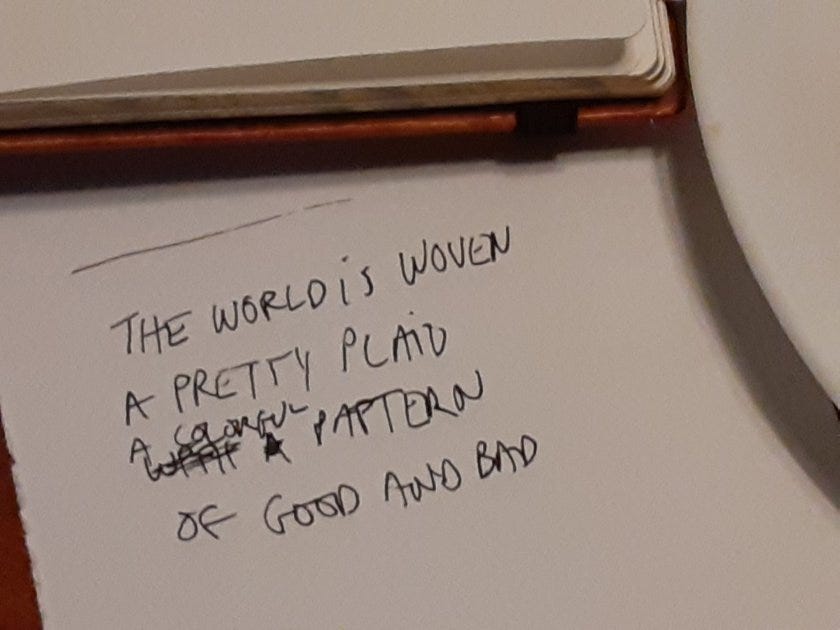 THE WORLD iS WOVEN
A PRETTY PLAiD
A COLORFUL PAPTERN
OF GOOD AND BAD